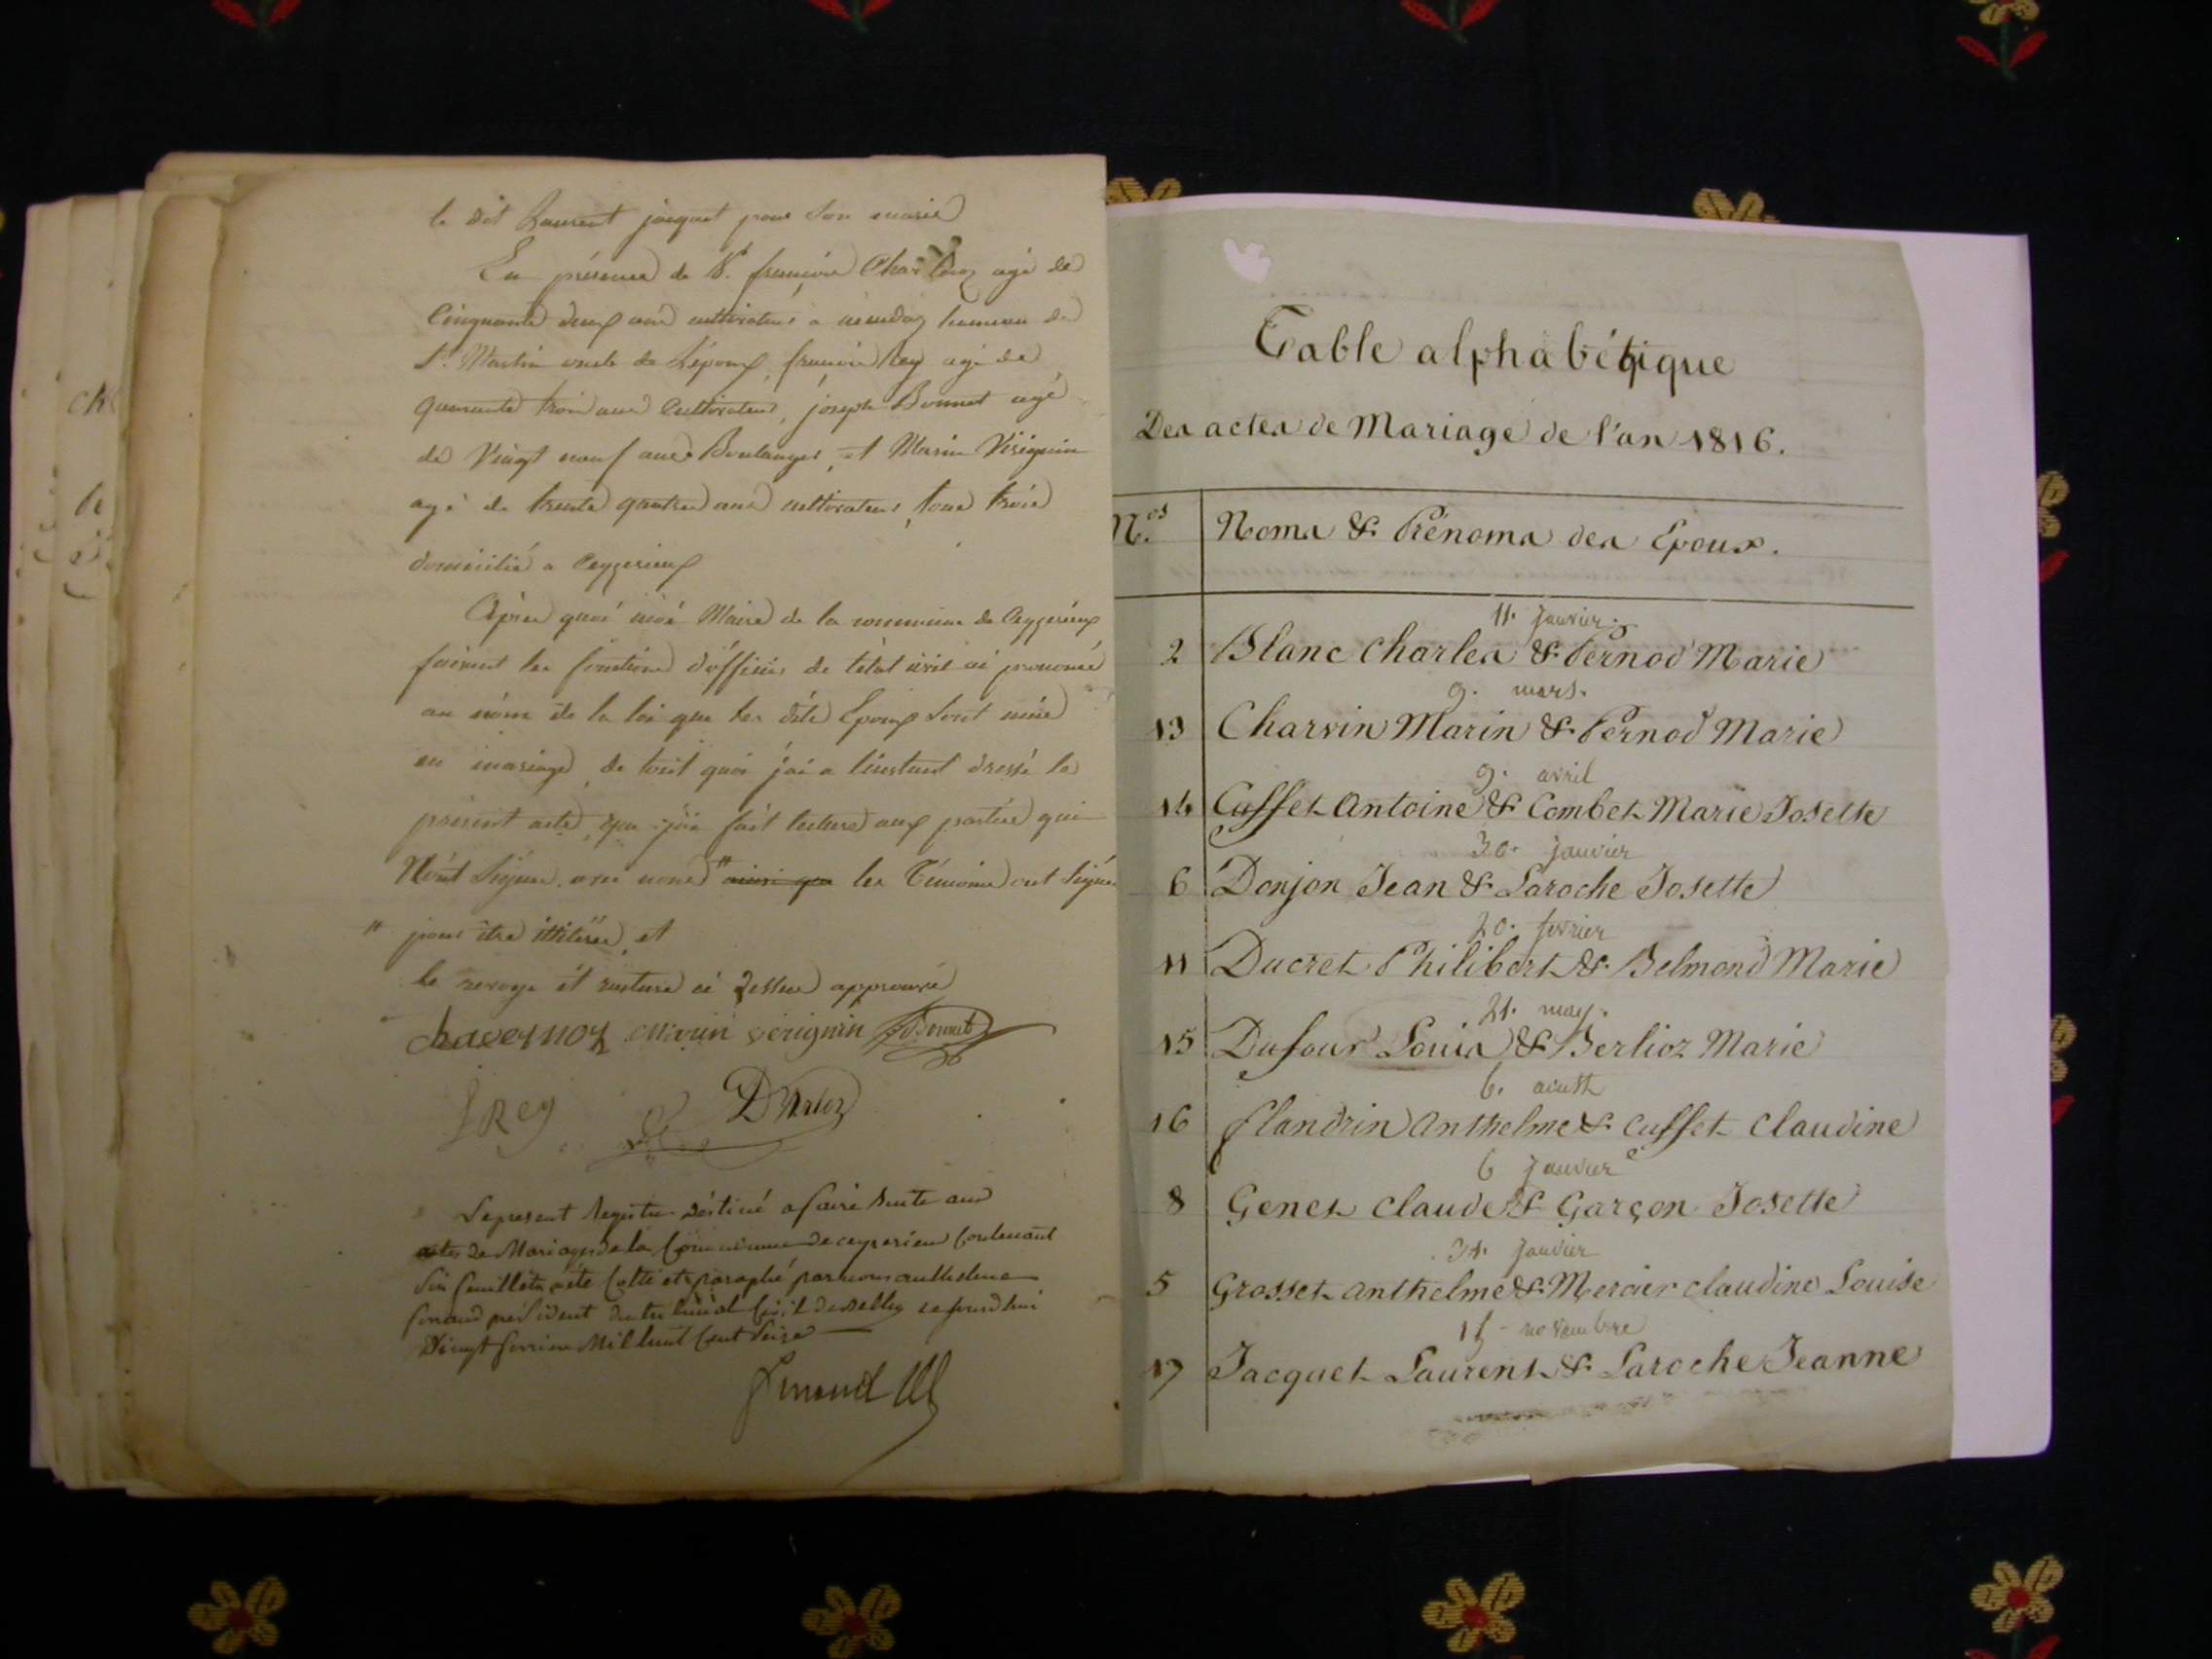 le dit Laurent jacquet pour Son marié
En présence de Sr. françois agé de
Cinquante deux ans cultivateur a hameau de
St. Martin oncle de L'époux, françois Rey agé de
quarante trois ans Cultivateur, joseph Bonnet agé
de Vingt neuf ans Boulanger, et Marin Vérignin
agé de trente quatre ans cultivateur, tous trois
domicilié a Ceyzerieux
Après quoi moi Maire de la commune de Ceyzerieux
faisant les fonctions d'officier de l'état civil ai prononcé
au nom de la loi que les dits Epoux Sont unis
en mariage, de tout quoi j'ai a l'instant dressé le
présent acte, que j'ai fait lecture aux parties qui
N'ont Signé avec nous " ainsi que les Témoins ont Signé
" pour être illitérés, et
le renvoye et rature ci dessus approuvé
Marin Vérignin JBonnet
f Rey
Le present Registre déstiné a faire Suite aux
actes de Mariages de la Commune de ceyzerieu Contenant
Six feuillets a été Cotté et paraphé par nous anthelme
président du tribunal Civil de Belley ce jourd'hui
Vingt fevrier Mil huit Cent Seize
ch
Table alphabétique
Des actes de Mariage de l'an 1816.
N.os Noms & Prénoms des Epoux.
11. janvier.
2 Blanc Charles & Pernod Marie
9. mars.
13 Charvin Marin & Pernod Marie
9. avril
14 Cusset Antoine & Combet Marie Josette
30. janvier
6 Donjon Jean & Laroche Josette
20. fevrier
11 Ducret Philibert & Belmond Marie
21. may.
15 Dufour Louis & Berlioz Marie
6. aoust
16 flandrin Anthelme & Cusset Claudine
6 janvier
8 Genet Claude & Garçon Josette
31. janvier
5 Grosset Anthelme & Mercier Claudine Louise
novembre
17 Jacquet Laurent & Laroche Jeanne